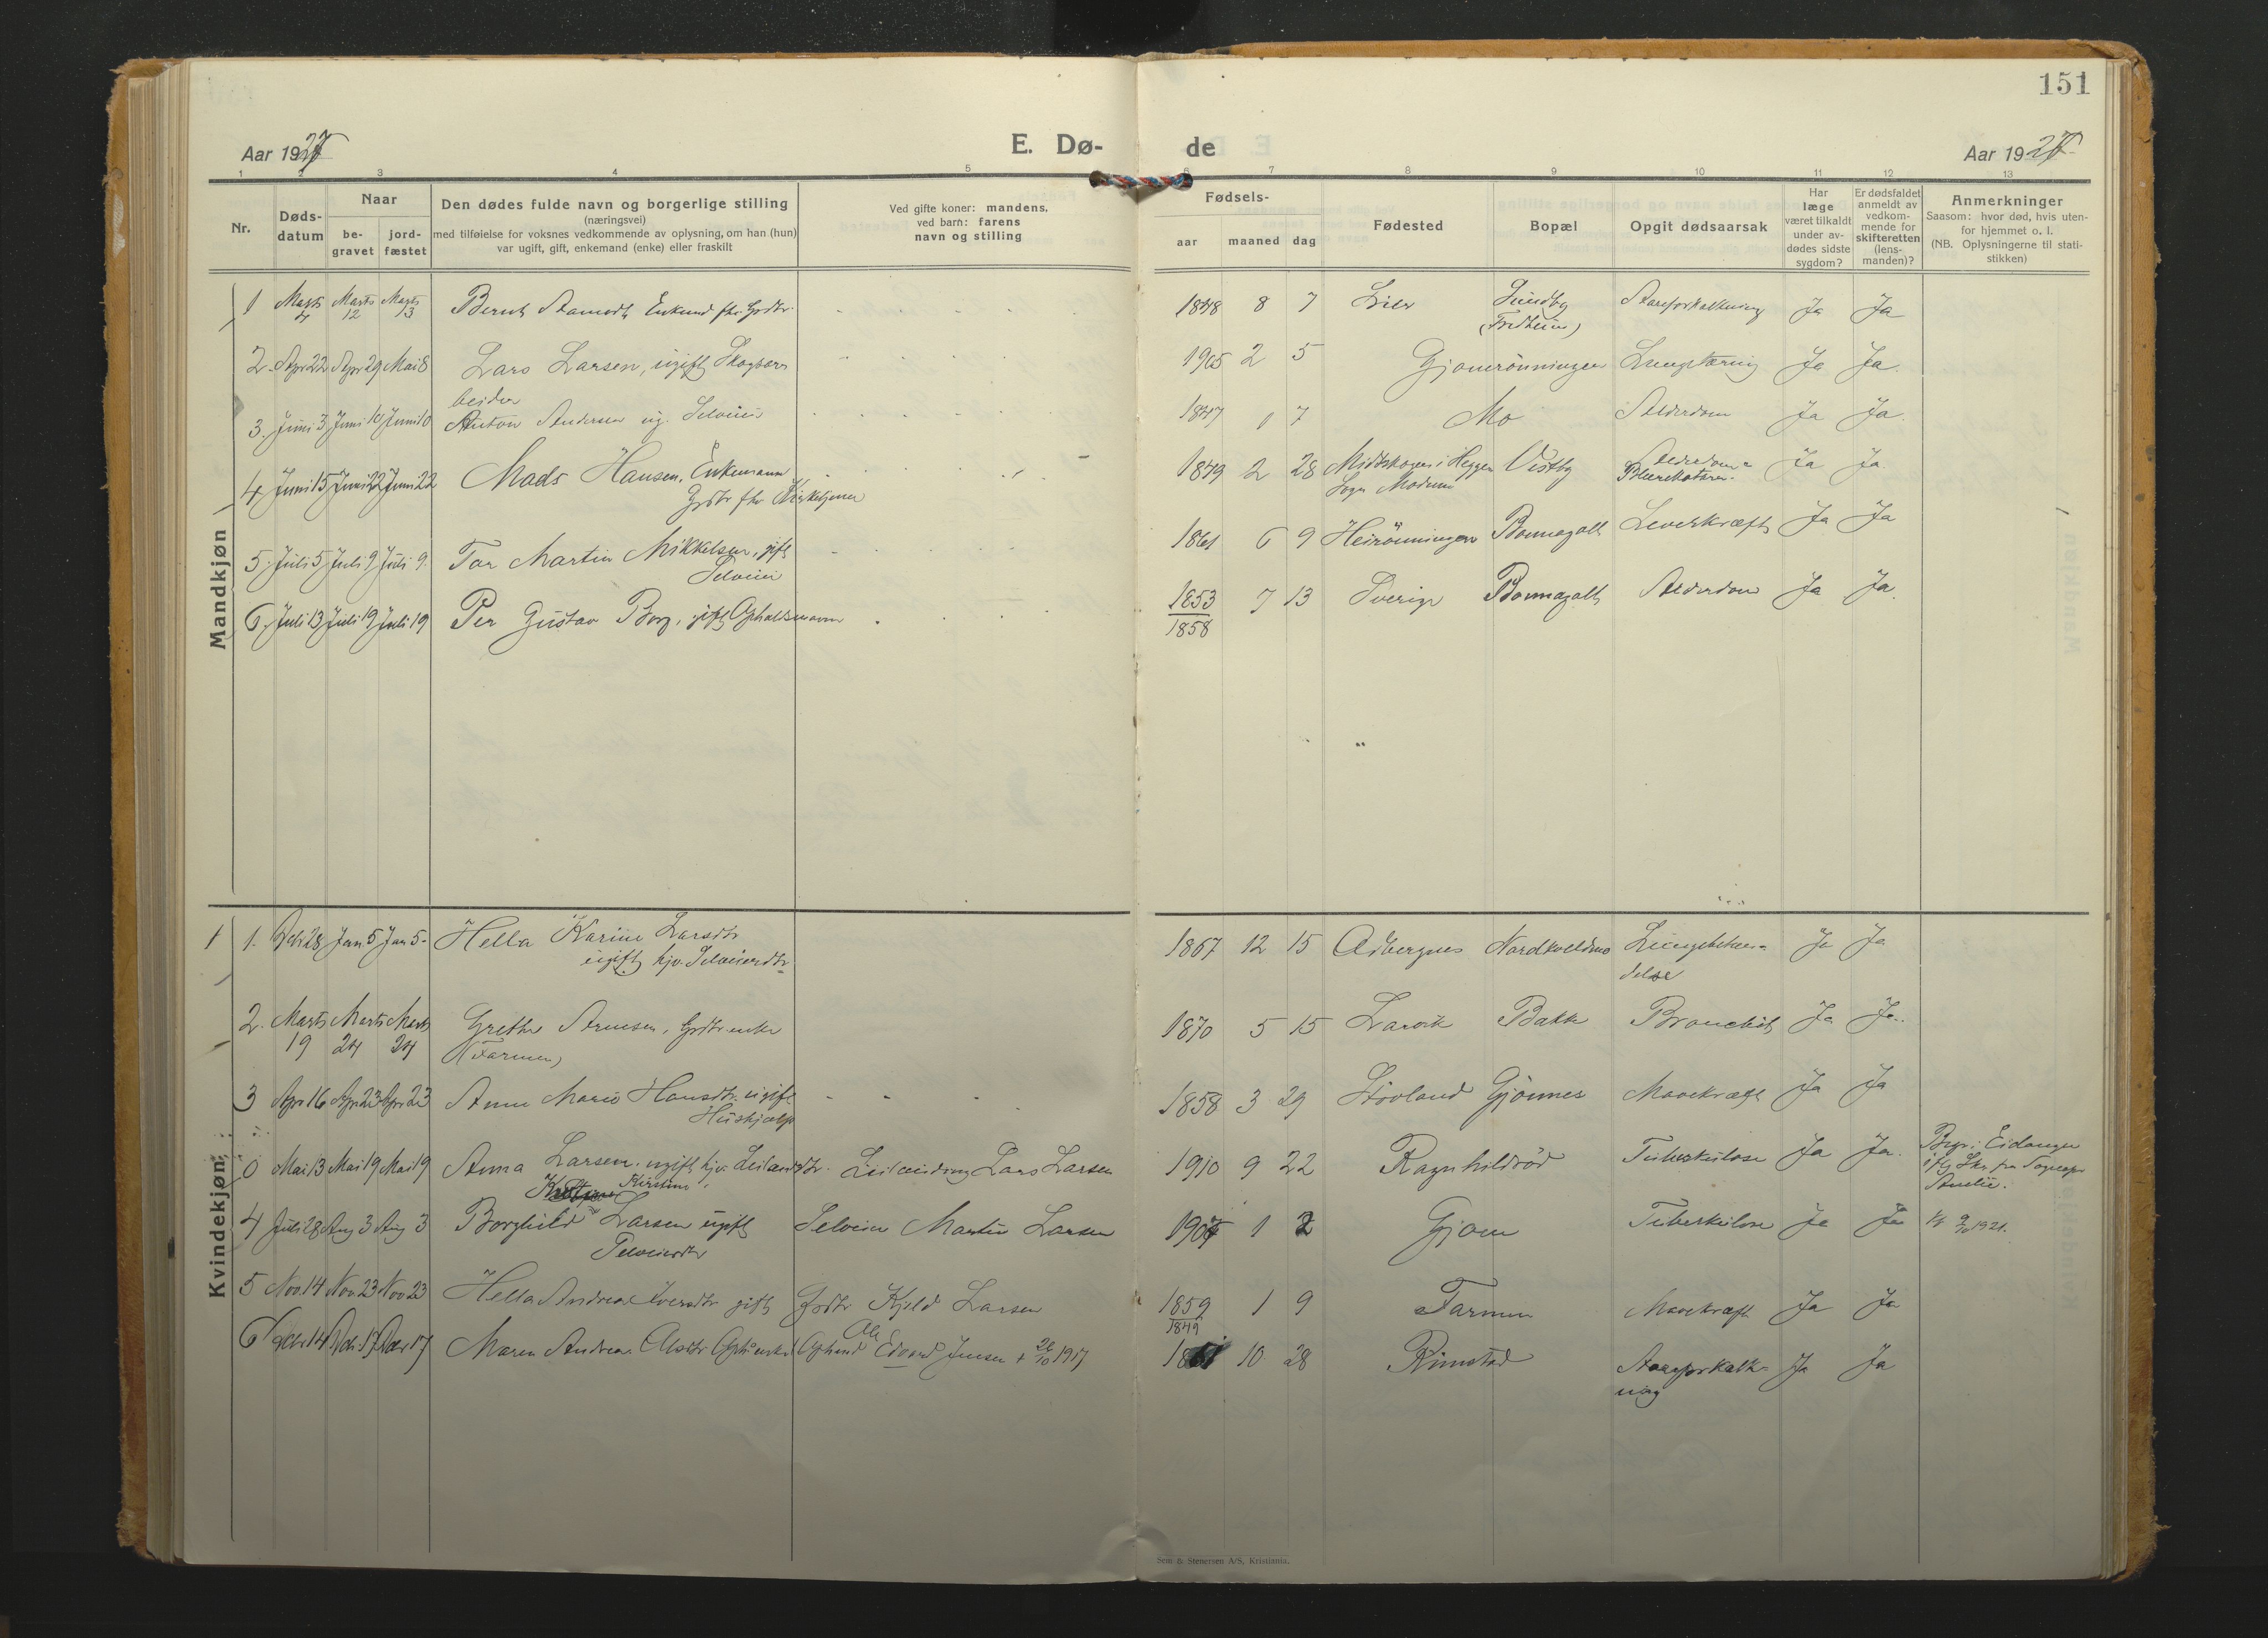 151
Aar 1927
E. Dø-
de
Aar 1927
1 2 3 4 5 6 7 8 9 10 11 12 13
Nr.
Døds-
datum
Naar
be-
gravet
jord-
fæstet
Den dødes fulde navn og borgerlige stilling
(næringsvei)
med tilføielse for voksnes vedkommende av oplysning, om han (hun)
var ugift, gift, enkemand (enke) eller fraskilt
Ved gifte koner: mandens,
ved barn: farens
navn og stilling
Fødsels-
aar maaned dag
Fødested
Bopæl
Opgit dødsaarsak
Har
læge
været tilkaldt
under av-
dødes sidste
sygdom?
Er dødsfaldet
anmeldt av
vedkom-
mende for
skifteretten
(lens-
manden)?
Anmerkninger
Saasom: hvor død, hvis uten-
for hjemmet o. l.
(NB. Oplysningerne til stati-
stikken)
Mandkjøn
1 Marts 4 Marts 12 Marts 13 Bernt Enkemd fhv. Grdbr. 1848 8 7 Lier Sundby Aareforkalkning Ja Ja
2. Apr 22 Apr 29 Mai 8 Lars Larsen, ugift Skogsar- 1905 2 5 Gjonerønningen Lungetæring Ja Ja.
beider
3. Juni 3 Juni 10 Juni 10 Anton Andersen ug. Selveier 1847 1 7 Mo Alderdom Ja Ja.
4 Juni 15 Juni 22 Juni 22 Mads Hansen, Enkemann 1849 2 28 Midtskogen i Heggen Vestby Alderdom- Ja Ja.
Grdbr fhv Kirketjener Sogn Modum Blærekatarr.
5. Juli 5 Juli 9 Juli 9. Tor Martin Mikkelsen, gift 1861 6 9 Heirønningen Bonnegolt Leverkræft Ja Ja
Selveier
6, Juli 13 Juli 19 Juli 19 Per Gustav Borg, gift Opholdsmann 1853 7 13 Sverige Bonnegolt Alderdom Ja Ja.
1858
Kvindekjøn
1. Dcb 28 Jan 5 Jan 5. Hella Karine Larsdtr 1867 12 15 Nordkveldmo Lungebeten- Ja Ja
ugift hjv. Selveierdtr delse
2. Marts Marts Marts Grethe Arnesen, Grdbr enke 1870 5 15 Larvik Bakke Bronchit Ja Ja.
19 24 24 (Farmen)
3 Apr 16 Apr 23 Apr 23 Anne Marie Hansdtr. ugift 1858 3 29 Støvland Gjønnes Mavekræft Ja Ja
Hushjælp
0 Mai 13 Mai 19 Mai 19 Anna Larsen, ugift hjv. Leilændingdtr. Leilænding Lars Larsen 1910 9 22 Ragnhildrød Tuberkulose Ja Ja. Begr. i Eidanger
iflg Skr. fra Sogneprs
Kirstine
4 Juli 28 Aug 3 Aug 3 Borghild Larsen ugift Selveier Martin Larsen 1907 1 2 Gjom Tuberkulose Ja Ja 9/10 1921.
Selveierdtr
5 Nov. 14 Nov. 23 Nov 23 Hella Andrea Iversdtr gift Grdbr Kjeld Larsen 1859 1 9 Farmen Mavekræft Ja Ja
1849
6 Dcbr 14 Dcb. 17 Dcbr 17 Maren Andrea Olsdtr Ophs enke Ophmd Ole Edvard Jensen + 26/10 1917 10. 28 Rimstad Aareforkalk- Ja Ja
ning
Sem & Stenersen A/S, Kristiania.